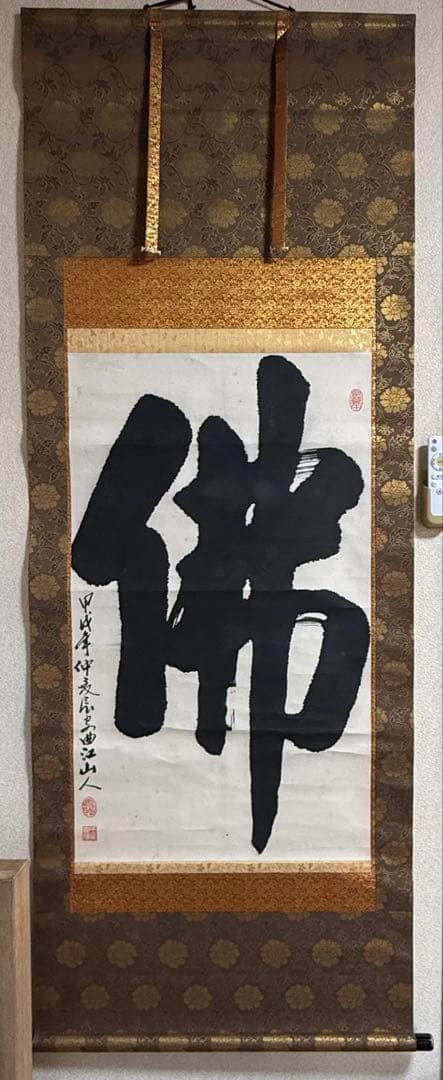 佛
甲戌年仲夏長安曲江山人